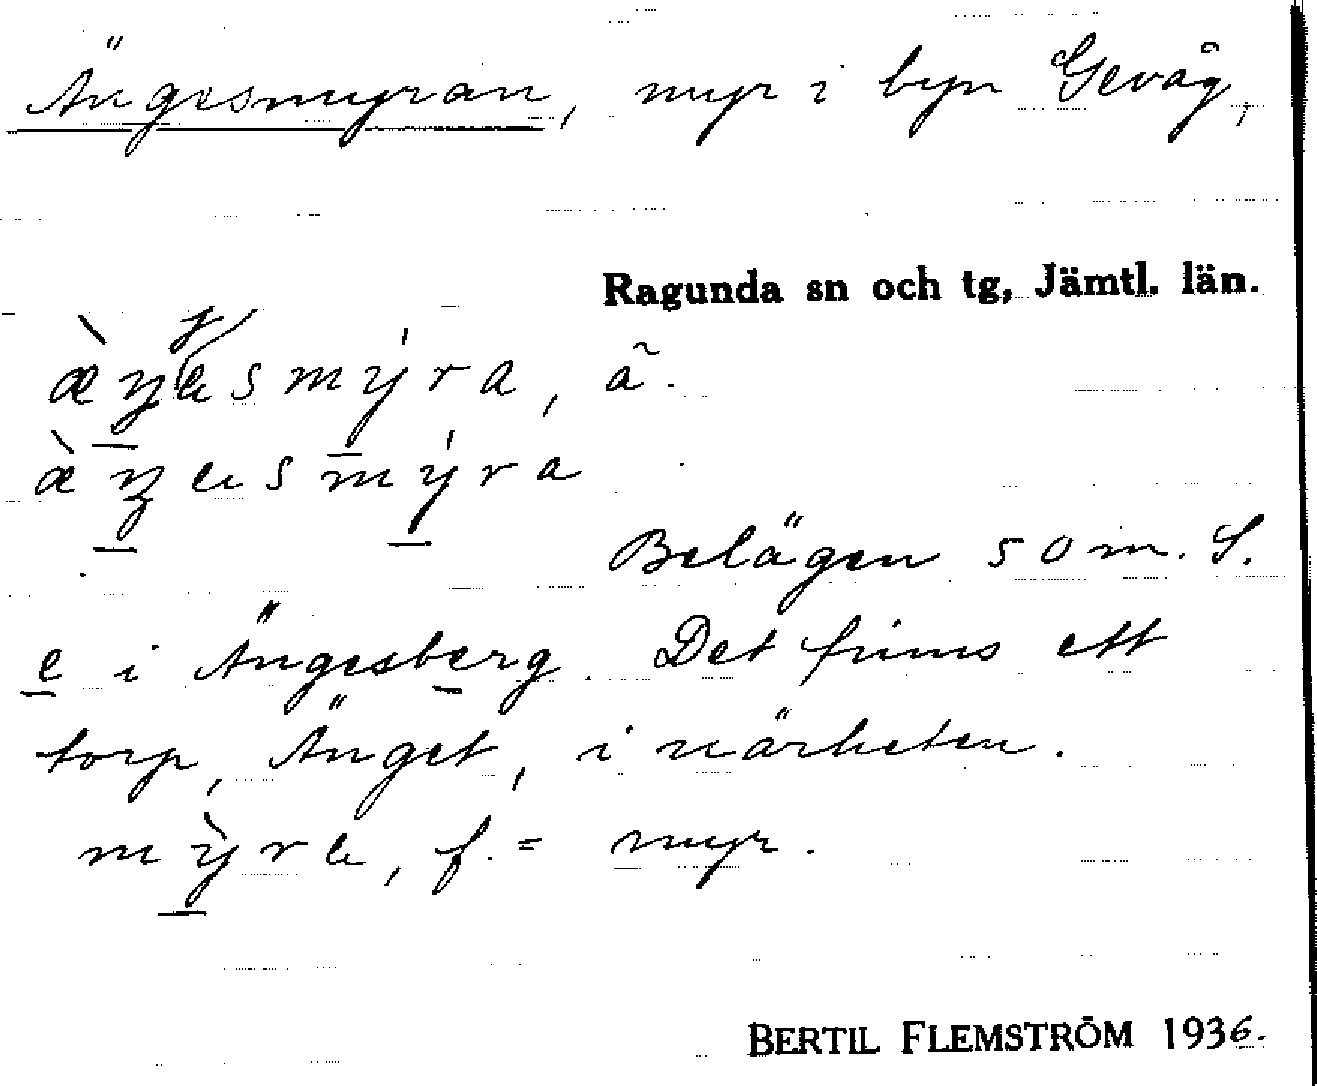 Ängesmyran, myr i byn Gevåg,
Ragunda sn och tg, Jämtl. län.
æ̀ŋesmýra, ã.
æ̀ŋesmýra
Belägen 50 m. S.
e i Ängesberg. Det finns ett
torp, Änget, i närheten.
mỳre, f. = myr.
BERTIL FLEMSTRÖM 1936.